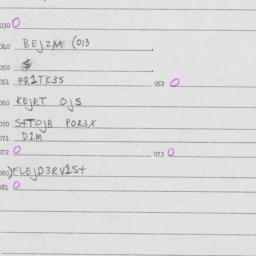 030 O
040 BEJZM (013
050 $
051 PR1TK35 052 O
060 KEJRT OJS
070 S+TOJB POR3X
071 D1M
072 O 073 O
080 )FLEJD3RV1S+
081 O